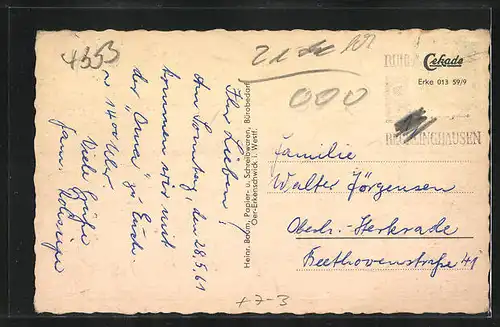 4353
21
Ihr Lieben!
Am Sonntag, den 28.5.61
kommen wir mit
der "Oma" zu Euch.
14 00 Uhr
Viele Grüße
Fam.
Heinr. Baom, Papier- u. Schreibwaren, Bürobedarf
Oer-Erkenschwick i. Westf.
000
RUHR
Cekade
Erke 013 59/9
RECKLINGHAUSEN
Familie
Walter Jörgensen
Oberh.-Sterkrade
Beethovenstraße 41
+7-3